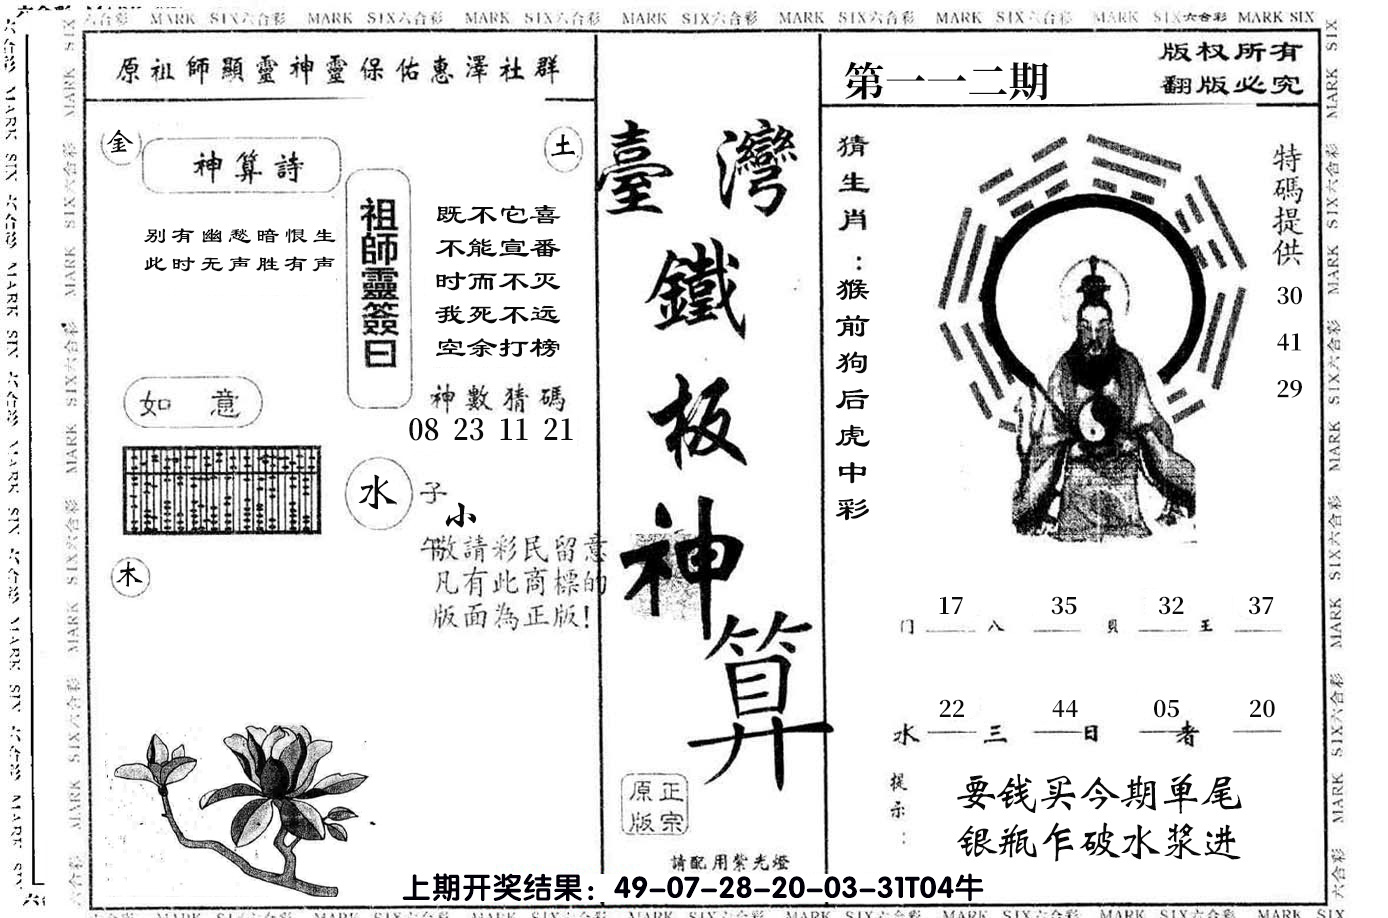 MARK SIX六合彩 MARK SIX六合彩 MARK SIX六合彩 MARK SIX六合彩 MARK SIX六合彩 MARK SIX六合彩 MARK SIX六合彩 MARK SIX
原祖師顯靈神靈保佑惠澤社群
金
神算詩
土
别有幽愁暗恨生
此时无声胜有声
祖師靈簽曰
既不它喜
不能宣番
时而不灭
我死不远
空余打榜
神數猜碼
08 23 11 21
如意
水
子
小
午
木
敬請彩民留意
凡有此商標的
版面為正版!
臺灣
鐵
板
神
算
正宗
原版
請配用紫光燈
第一一二期
版权所有
翻版必究
猜生肖:猴前狗后虎中彩
特碼提供
30
41
29
17 35 32 37
门 八 貝 王
22 44 05 20
水 三 日 者
提示:
要钱买今期单尾
银瓶乍破水浆进
上期开奖结果：49-07-28-20-03-31T04牛